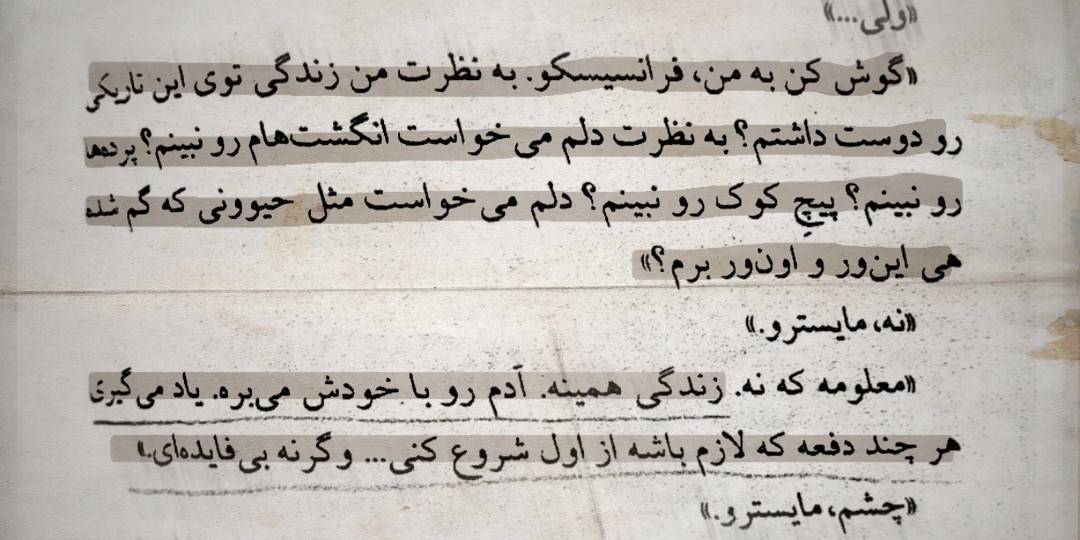 «ولی...»
«گوش کن به من، فرانسیسکو. به نظرت من زندگی توی این تاریکی
رو دوست داشتم؟ به نظرت دلم می‌خواست انگشت‌هام رو نبینم؟ پرده‌ها
رو نبینم؟ پیچِ کوک رو نبینم؟ دلم می‌خواست مثل حیوونی که گم شده
هی این‌ور و اون‌ور برم؟»
«نه، مایسترو.»
«معلومه که نه. زندگی همینه. آدم رو با خودش می‌بره. یاد می‌گیری
هر چند دفعه که لازم باشه از اول شروع کنی... وگرنه بی‌فایده‌ای.»
«چشم، مایسترو.»